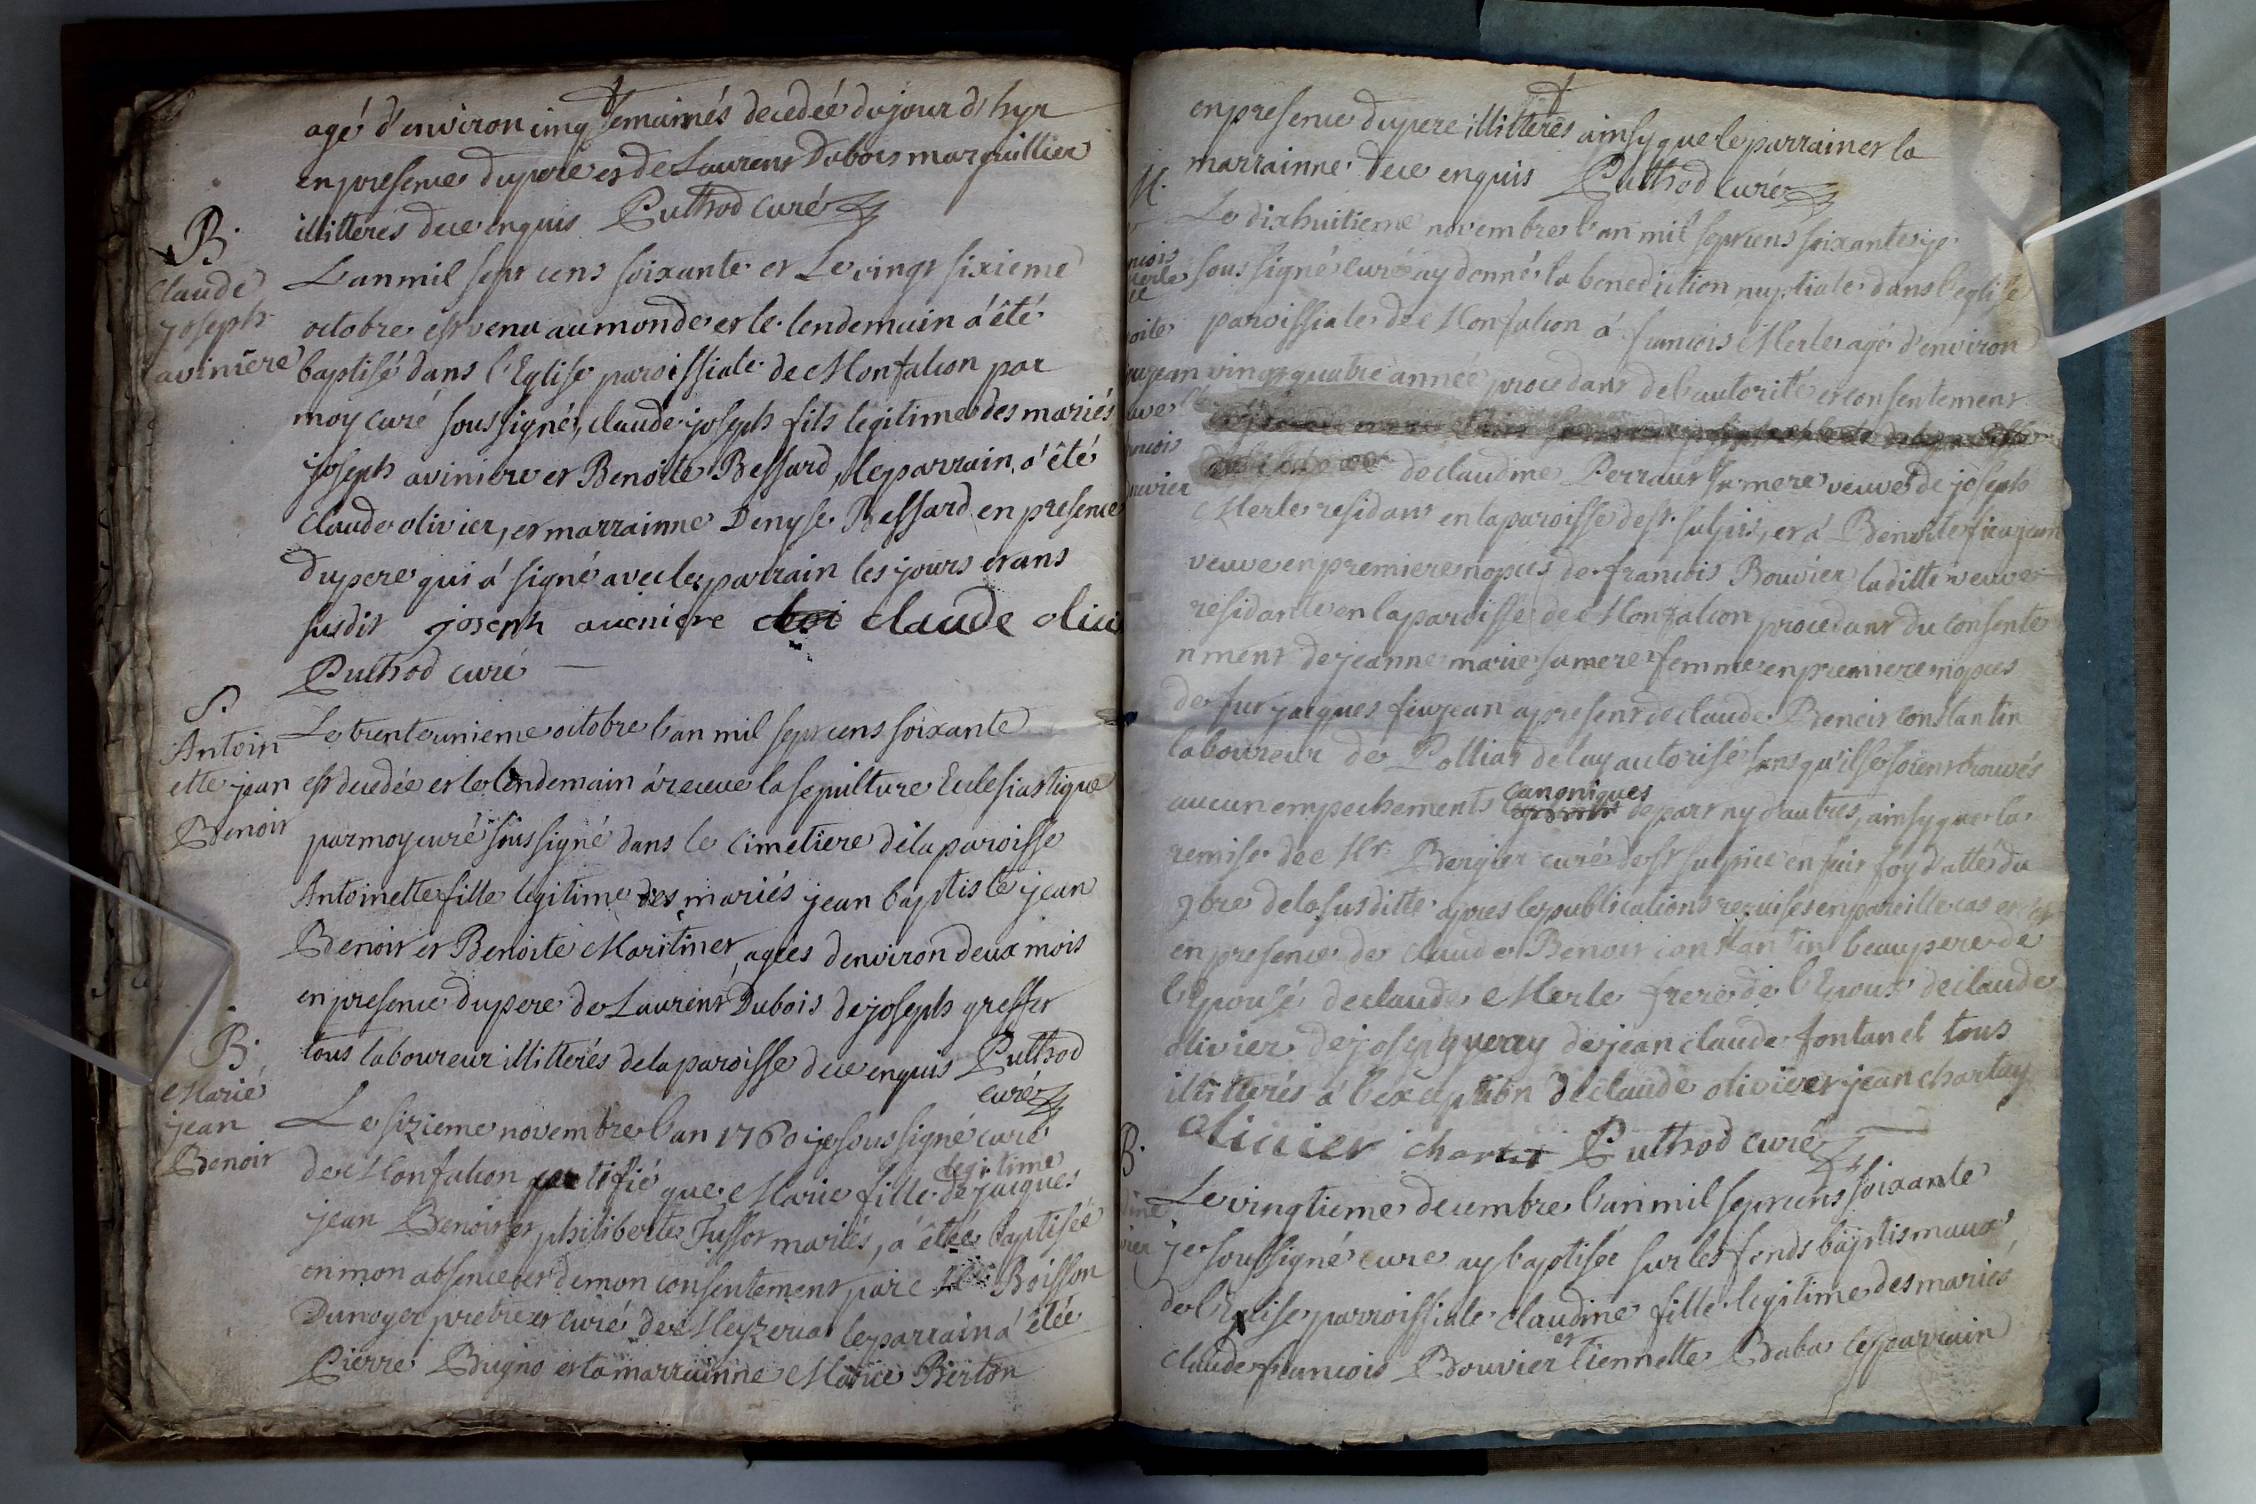 agé d'environ cinq semainés decedeé dujour d'hyr
en presence du pere et de Laurent Dubois marguillier
illitterés de ce enquis Puthod curé
B.
Claude
joseph
aviniere
L'an mil sept cens soixante et Le vingt sixieme
octobre est venu au monde et le lendemain a été
baptisé dans l'Eglise paroissiale de Monfalcon par
moy curé soussigné, claude joseph fils legitime des mariés
joseph aviniere et Benoite Bessard, le parrain a été
Claude olivier, et marrainne Denyse Bessard en presence
du pere qui a signé avec le parrain les jours et ans
susdit joseph aueniere claude oliui
Puthod curé
S.
Antoin
ette jean
Benoit
Le trente unieme octobre l'an mil sept cens soixante
est decedée et le lendemain a receue la sepulture Eclesiastique
par moy curé soussigné dans le cimetiere de la paroisse
Antoinette fille legitime des mariés jean baptiste jean
Benoit et Benoite Maritinet, ageés denviron deux mois
en presence du pere de Laurent Dubois de joseph greffet
tous laboureur illitterés de la paroisse de ce enquis Puthod
curé
B.
Marie
jean
Benoit
Le sizieme novembre l'an 1760 je soussigné curé
de Monfalcon certifié que Marie fille legitime de jacques
jean Benoit et philiberte Tissot mariés, a êteé baptisée
en mon absence et de mon consentement par Boisson
Dunoyer pretre et curé de Meyzeriat le parrain a étée
Pierre Bugno et la marrainne Marie Berton
en presence du pere illitterés ainsy que le parrain et la
marrainne de ce enquis Puthod curé
M.
Le dixhuitieme novembre l'an mil sept cens soixante je
sous signé curé ay donné la benediction nuptiale dans l'eglise
paroissiale de Monfalcon a francois Merle agé d'environ
vingt quatre année procedant de l'autorité et consentement
de claudine Perraut sa mere veuve de joseph
Merle residant en la paroisse de st. sulpis, et a Benoite feu jean
veuve en premiere nopces de francois Bouvier laditte veuve
residante en la paroisse de Monfalcon procedant du consente
nment de jeanne marie sa mere femme en premiere nopces
de fut jacques feu jean a present de claude Benoit constantin
laboureur de Polliat de luy autorisé sans qu'il se soient trouvés
aucun empechements canoniques de part ny d'autres, ainsy que la
remise de Mr. Bergier curé de st sulpice en fait foy d'atté du
9bre de la susditte apres les publications requises en pareille cas et
en presence de claude Benoit constantin beaupere de
l'Epousé de claude Merle frere de l'Epoux de claude
olivier de joseph veray de jean claude fontanel tous
illitterés á l'exception de claude olivier et jean chartay
oliuier Puthod curé
B.
Le vingtieme decembre l'an mil sept cens soixante
je soussigné cure ay baptisée sur les fonds baptismaux
de l'Eglise parroissiale claudine fille legitime des mariés
claude francois Bouvier et tiennette Baba le parrain